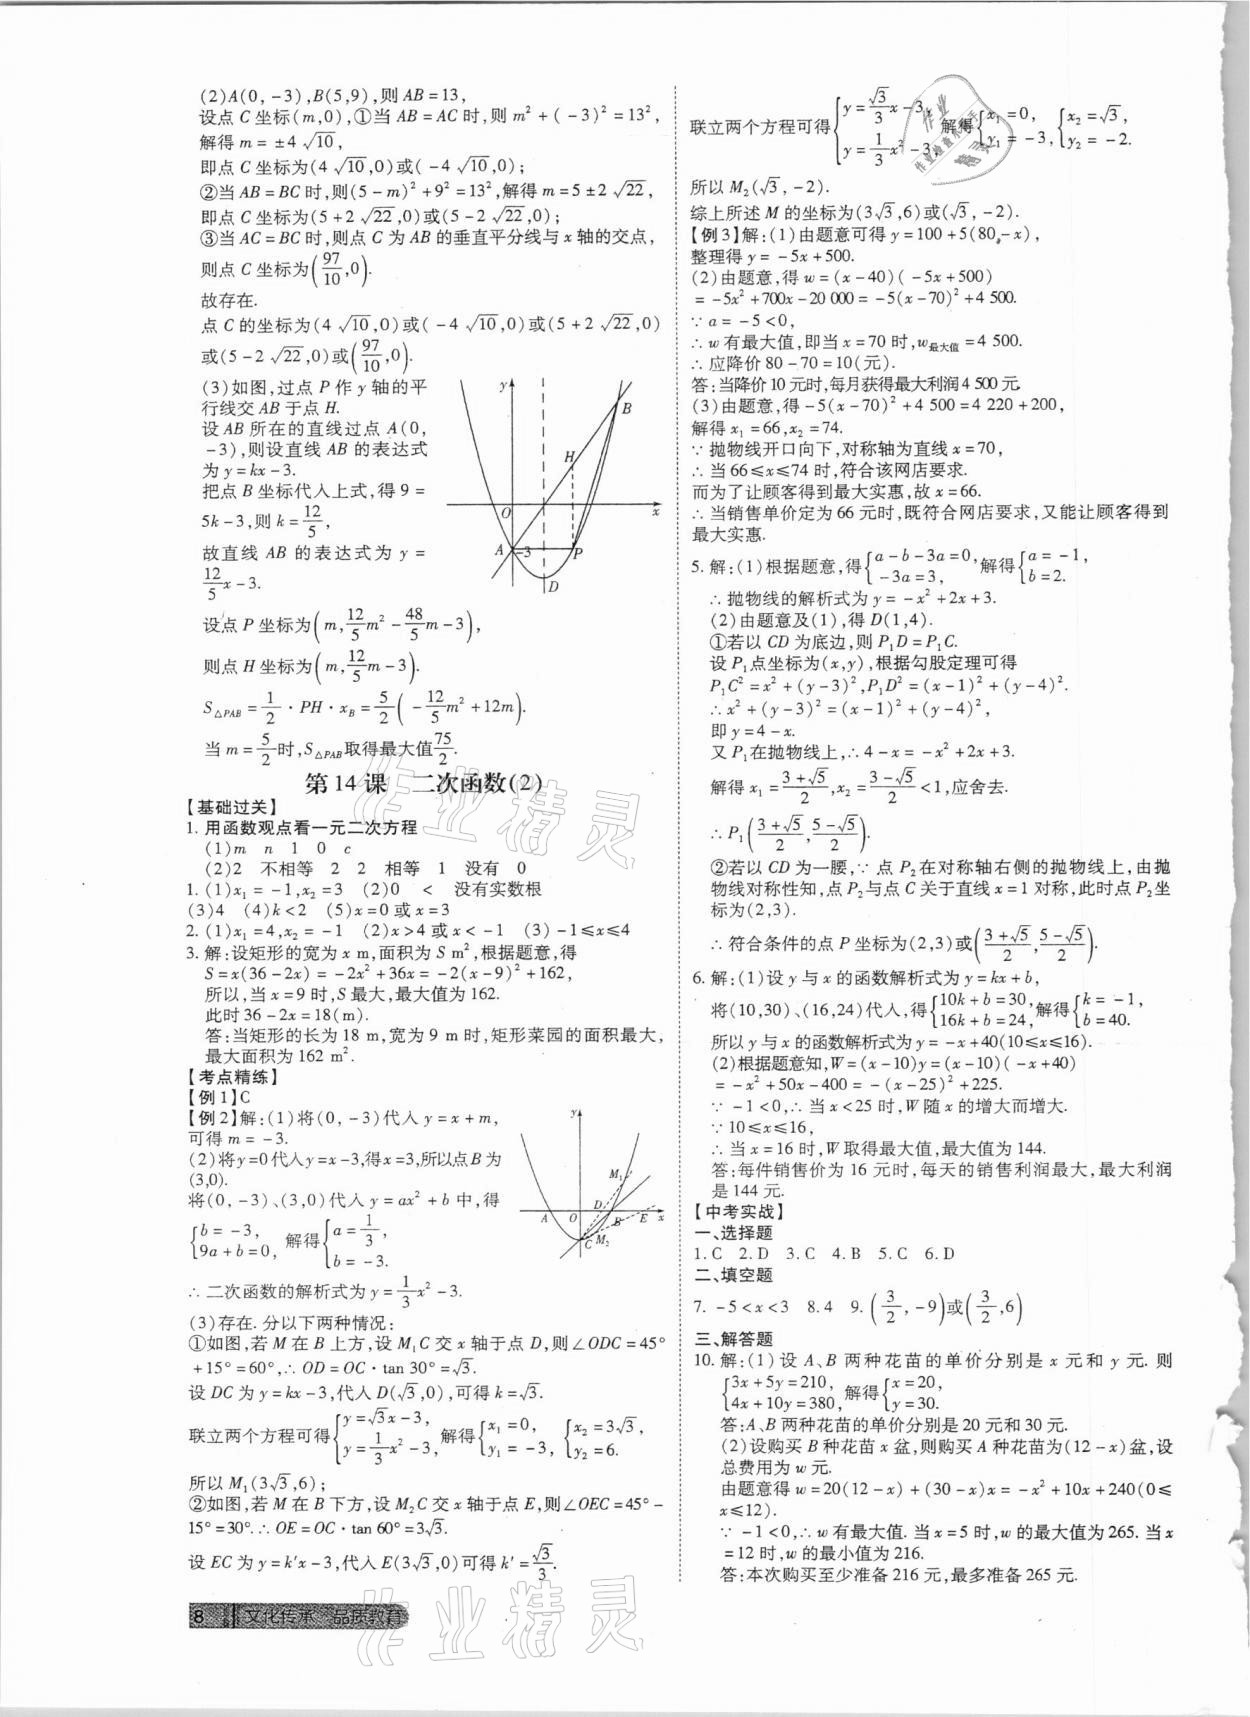 (2)A(0,-3),B(5,9),则AB=13,
设点C坐标(m,0),①当AB=AC时,则m²+(-3)²=13²,
解得m=±4√10,
即点C坐标为(4√10,0)或(-4√10,0);
②当AB=BC时,则(5-m)²+9²=13²,解得m=5±2√22,
即点C坐标为(5+2√22,0)或(5-2√22,0);
③当AC=BC时,则点C为AB的垂直平分线与x轴的交点,
则点C坐标为(97/10,0).
故存在.
点C的坐标为(4√10,0)或(-4√10,0)或(5+2√22,0)
或(5-2√22,0)或(97/10,0).
(3)如图,过点P作y轴的平
行线交AB于点H.
设AB所在的直线过点A(0,
-3),则设直线AB的表达式
为y=kx-3.
把点B坐标代入上式,得9=
5k-3,则k=12/5,
故直线AB的表达式为y=
12/5x-3.
y B H O x A -3 P D
设点P坐标为(m,12/5m²-48/5m-3),
则点H坐标为(m,12/5m-3).
S△PAB=1/2·PH·xB=5/2(-12/5m²+12m).
当m=5/2时,S△PAB取得最大值75/2.
第14课 二次函数(2)
【基础过关】
1.用函数观点看一元二次方程
(1)m n 1 0 c
(2)2 不相等 2 2 相等 1 没有 0
1.(1)x₁=-1,x₂=3 (2)0 < 没有实数根
(3)4 (4)k<2 (5)x=0或x=3
2.(1)x₁=4,x₂=-1 (2)x>4或x<-1 (3)-1≤x≤4
3.解:设矩形的宽为x m,面积为S m²,根据题意,得
S=x(36-2x)=-2x²+36x=-2(x-9)²+162,
所以,当x=9时,S最大,最大值为162.
此时36-2x=18(m).
答:当矩形的长为18 m,宽为9 m时,矩形菜园的面积最大,
最大面积为162 m².
【考点精练】
【例1】C
【例2】解:(1)将(0,-3)代入y=x+m,
可得m=-3.
(2)将y=0代入y=x-3,得x=3,所以点B为
(3,0).
将(0,-3)、(3,0)代入y=ax²+b中,得
{b=-3, 9a+b=0, 解得{a=1/3, b=-3.
∴二次函数的解析式为y=1/3x²-3.
y M₁ D A O B E x C M₂
(3)存在.分以下两种情况:
①如图,若M在B上方,设M₁C交x轴于点D,则∠ODC=45°
+15°=60°,∴OD=OC·tan30°=√3.
设DC为y=kx-3,代入D(√3,0),可得k=√3.
联立两个方程可得{y=√3x-3, y=1/3x²-3, 解得{x₁=0, y₁=-3, {x₂=3√3, y₂=6.
所以M₁(3√3,6);
②如图,若M在B下方,设M₂C交x轴于点E,则∠OEC=45°-
15°=30°.∴OE=OC·tan60°=3√3.
设EC为y=k′x-3,代入E(3√3,0)可得k′=√3/3.
8 文化传承 品质教育
联立两个方程可得{y=√3/3x-3, y=1/3x²-3, 解得{x₁=0, y₁=-3, {x₂=√3, y₂=-2.
所以M₂(√3,-2).
综上所述M的坐标为(3√3,6)或(√3,-2).
【例3】解:(1)由题意可得y=100+5(80-x),
整理得y=-5x+500.
(2)由题意,得w=(x-40)(-5x+500)
=-5x²+700x-20 000=-5(x-70)²+4 500.
∵a=-5<0,
∴w有最大值,即当x=70时,w最大值=4 500.
∴应降价80-70=10(元).
答:当降价10元时,每月获得最大利润4 500元.
(3)由题意,得-5(x-70)²+4 500=4 220+200,
解得x₁=66,x₂=74.
∵抛物线开口向下,对称轴为直线x=70,
∴当66≤x≤74时,符合该网店要求.
而为了让顾客得到最大实惠,故x=66.
∴当销售单价定为66元时,既符合网店要求,又能让顾客得到
最大实惠.
5.解:(1)根据题意,得{a-b-3a=0, -3a=3, 解得{a=-1, b=2.
∴抛物线的解析式为y=-x²+2x+3.
(2)由题意及(1),得D(1,4).
①若以CD为底边,则P₁D=P₁C.
设P₁点坐标为(x,y),根据勾股定理可得
P₁C²=x²+(y-3)²,P₁D²=(x-1)²+(y-4)².
∴x²+(y-3)²=(x-1)²+(y-4)²,
即y=4-x.
又P₁在抛物线上,∴4-x=-x²+2x+3.
解得x₁=(3+√5)/2,x₂=(3-√5)/2<1,应舍去.
∴P₁((3+√5)/2,(5-√5)/2).
②若以CD为一腰,∵点P₂在对称轴右侧的抛物线上,由抛
物线对称性知,点P₂与点C关于直线x=1对称,此时点P₂坐
标为(2,3).
∴符合条件的点P坐标为(2,3)或((3+√5)/2,(5-√5)/2).
6.解:(1)设y与x的函数解析式为y=kx+b,
将(10,30)、(16,24)代入,得{10k+b=30, 16k+b=24, 解得{k=-1, b=40.
所以y与x的函数解析式为y=-x+40(10≤x≤16).
(2)根据题意知,W=(x-10)y=(x-10)(-x+40)
=-x²+50x-400=-(x-25)²+225.
∵-1<0,∴当x<25时,W随x的增大而增大.
∵10≤x≤16,
∴当x=16时,W取得最大值,最大值为144.
答:每件销售价为16元时,每天的销售利润最大,最大利润
是144元.
【中考实战】
一、选择题
1.C 2.D 3.C 4.B 5.C 6.D
二、填空题
7.-5<x<3 8.4 9.(3/2,-9)或(3/2,6)
三、解答题
10.解:(1)设A、B两种花苗的单价分别是x元和y元.则
{3x+5y=210, 4x+10y=380, 解得{x=20, y=30.
答:A、B两种花苗的单价分别是20元和30元.
(2)设购买B种花苗x盆,则购买A种花苗为(12-x)盆,设
总费用为w元.
由题意得w=20(12-x)+(30-x)x=-x²+10x+240(0≤
x≤12).
∵-1<0,∴w有最大值.当x=5时,w的最大值为265.当x
=12时,w的最小值为216.
答:本次购买至少准备216元,最多准备265元.
作业精灵
作业精灵